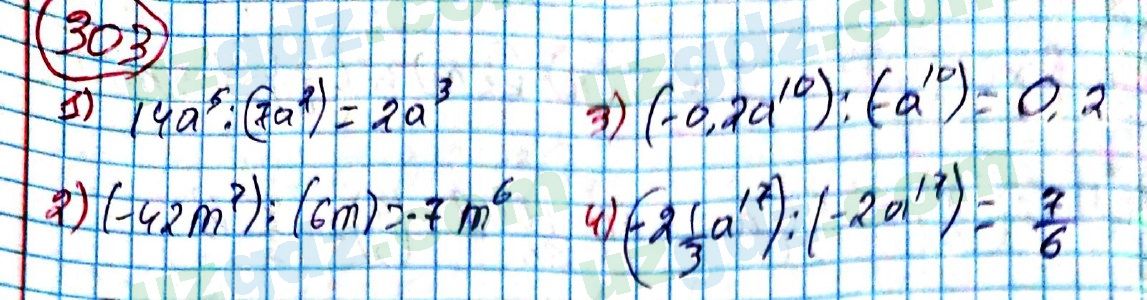 303
1) 14a⁵:(7a²)=2a³
3) (-0,2a¹⁰):(-a¹⁰)=0,2
2) (-42m⁷):(6m)=-7m⁶
4) (-2 1/3 a¹⁷):(-2a¹⁷)= 7/6
uzgdz.com